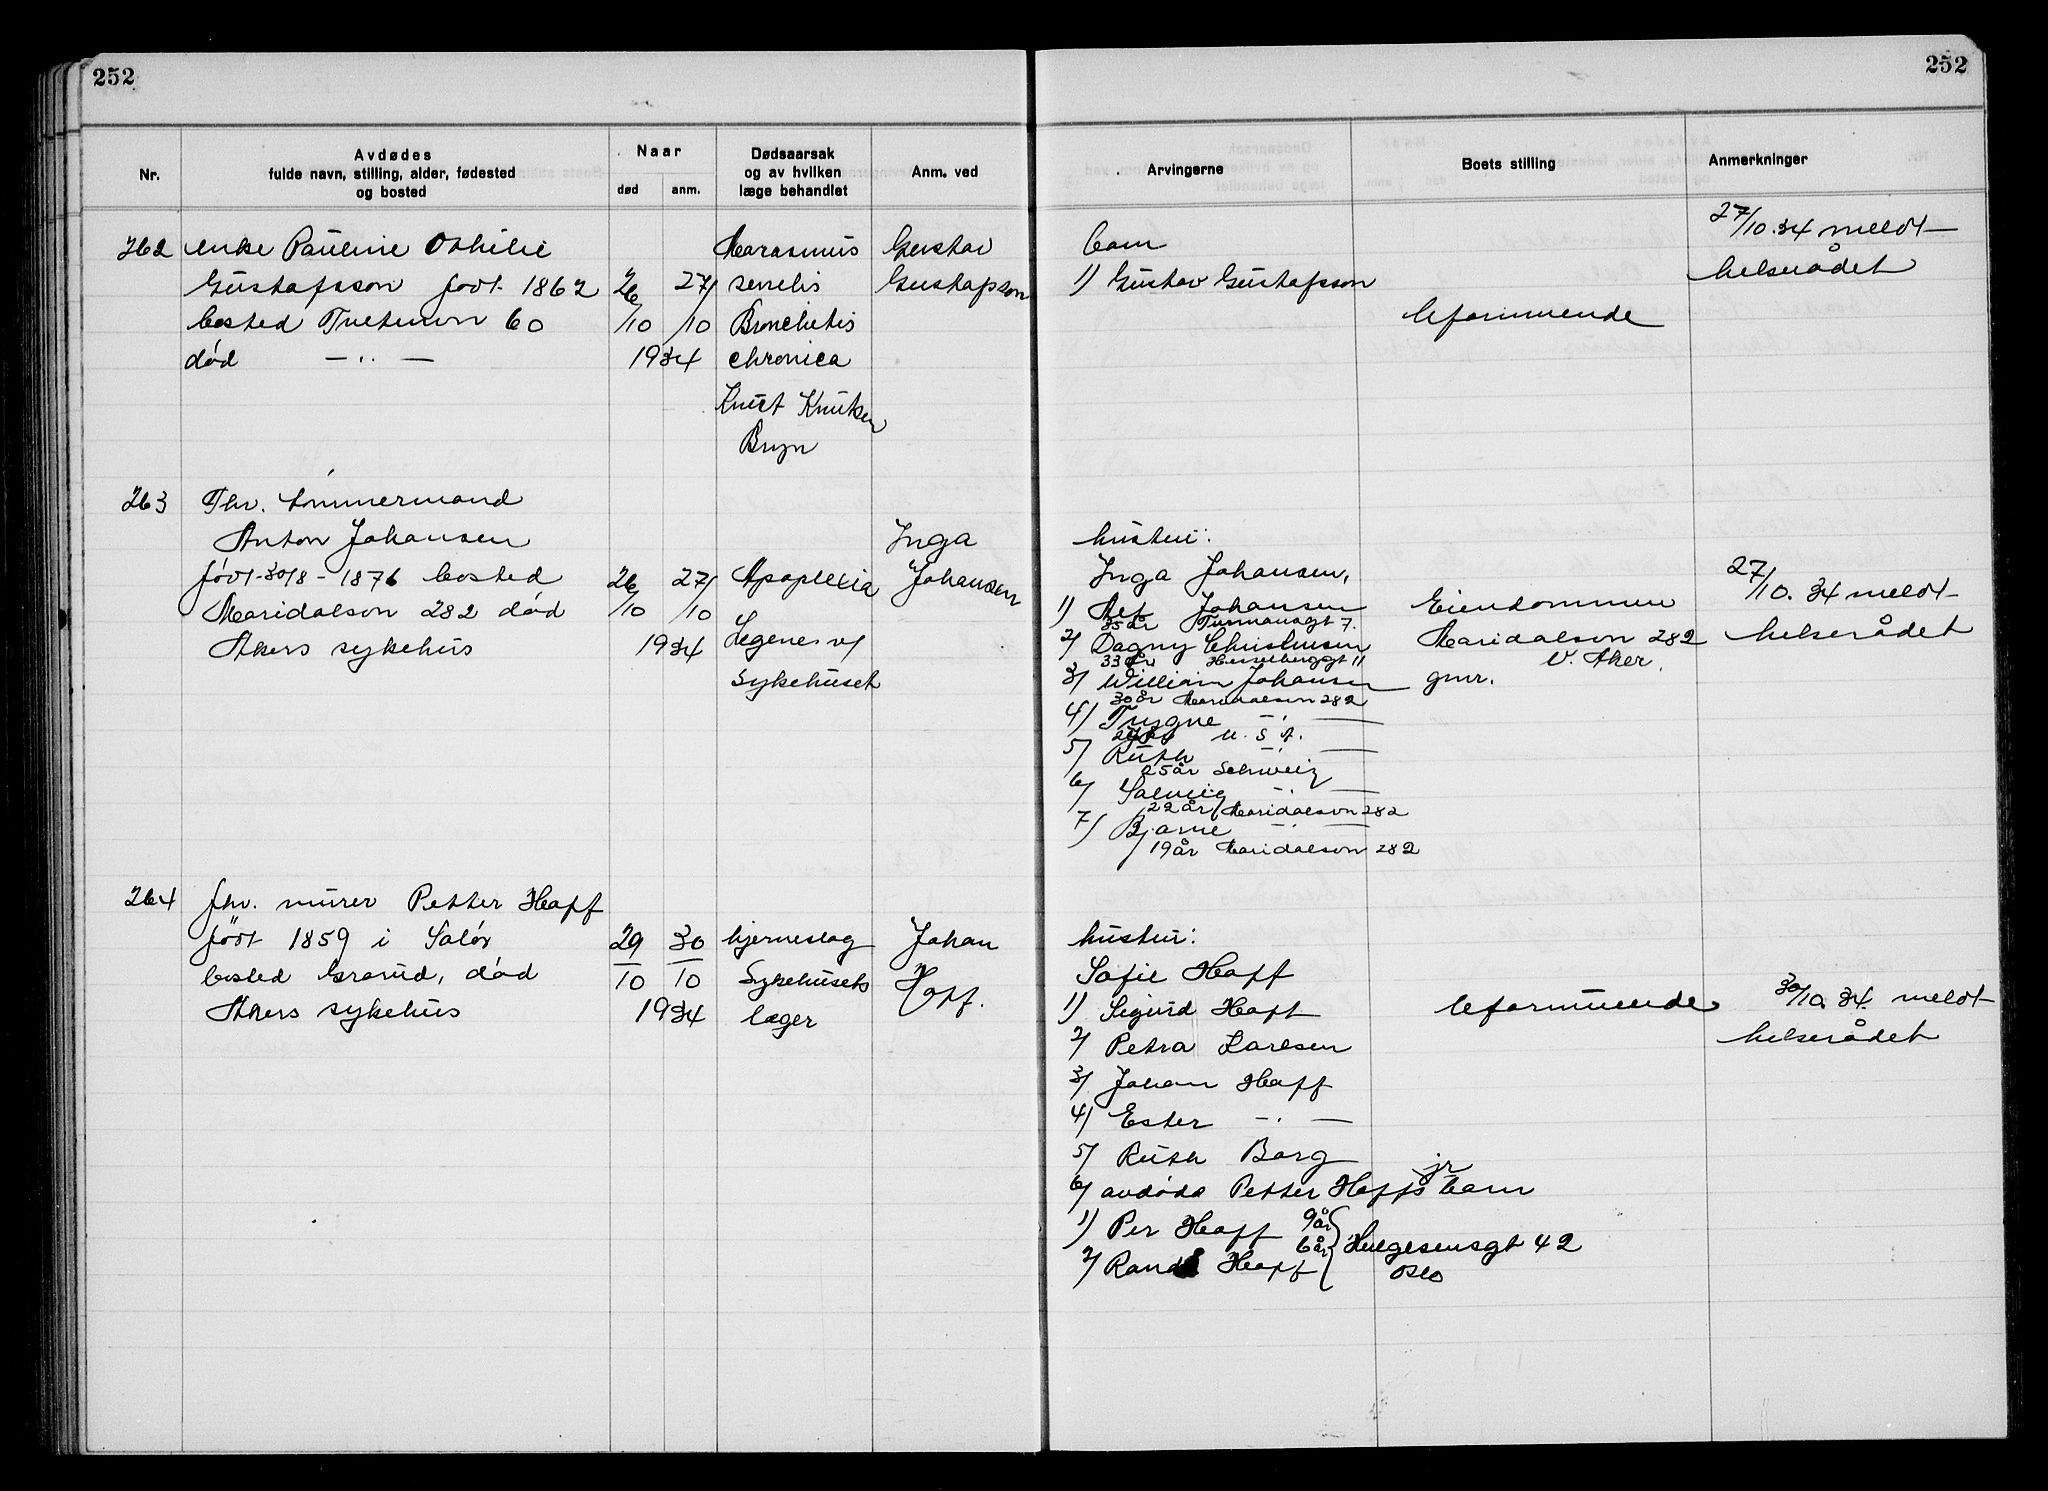 252
252
Nr.
Avdødes
fulde navn, stilling, alder, fødested
og bosted
Naar
død
anm.
Dødsaarsak
og av hvilken
læge behandlet
Anm. ved
Arvingerne
Boets stilling
Anmerkninger
262
enke Pauline Othilie
Gustafsson født 1862
bosted Tvetenvn 60
død — „ —
26/10
27/10
1934
Marasmus
senilis
Bronchitis
chronica
Knut Knutsen
Bryn
Gustav
Gustafsson
barn
1) Gustav Gustafsson
Uformuende
27/10.34 meldt
helserådet
263
Fhv. tømmermand
Anton Johansen
født 30/8-1876 bosted
Maridalsvn 282 død
Akers sykehus
26/10
27/10
1934
Apoplexia
Legene v/
sykehuset
Inga
Johansen
hustru:
Inga Johansen,
1) Johansen
35 år
2) Dagny Christensen
33 år Hesselberggt 11
3) William Johansen
30 år Maridalsvn 282
4) Trygve — „ —
U.S.A.
5) Ruth — „ —
25 år Schweiz
6) Solveig — „ —
22 år Maridalsvn 282
7) Bjarne — „ —
19 år Maridalsvn 282
Eiendommen
Maridalsvn 282
V. Aker.
27/10.34 meldt
helserådet
264
fhv. murer Petter Hoff
født 1859 i Solør
bosted Grorud, død
Akers sykehus
29/10
30/10
1934
hjerneslag
Sykehusets
læger
Johan
Hoff.
hustru:
Sofie Hoff
1) Sigurd Hoff
2) Petra Karlsen
3) Johan Hoff
4) Ester — „ —
5) Ruth Borg
6) avdøde Petter Hoffs jr barn
1) Per Hoff 9 år
2) Randi Hoff 6 år
Helgesensgt 42
Oslo
Uformuende
30/10.34. meldt
helserådet